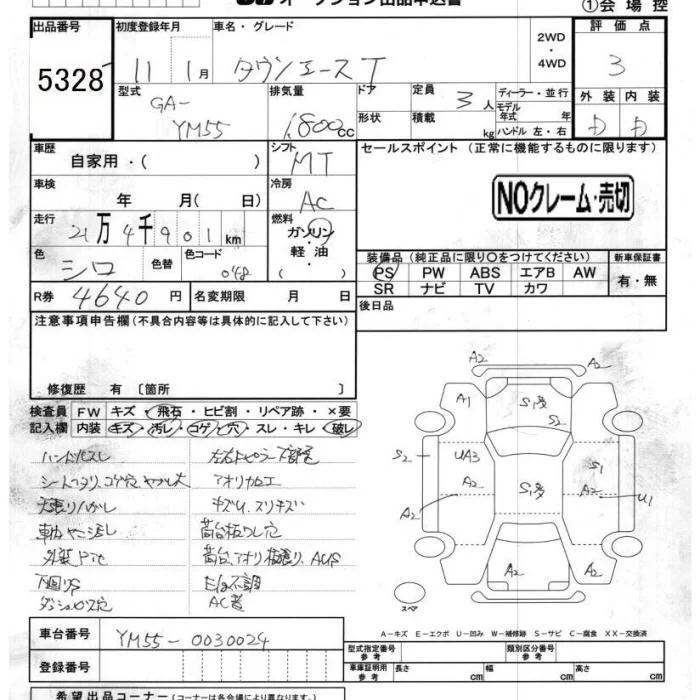 オークション出品申込書
①会場控
出品番号 初度登録年月 車名・グレード 2WD・4WD 評価点
5328 11 1月 タウンエースT 3
型式 排気量 ドア 定員 3人 ディーラー・並行 外装 内装
GA-YM55 1,800cc 形状 積載 kg モデル年式 年 D D
ハンドル 左・右
車歴 シフト セールスポイント (正常に機能するものに限ります)
自家用・( ) MT
車検 冷房 NOクレーム・売切
年 月( 日) AC
走行 燃料
21万4千901km ガソリン
軽油
・( )
色 色替 色コード
シロ 048
装備品 (純正品に限り○をつけてください) 新車保証書
PS PW ABS エアB AW 有・無
SR ナビ TV カワ
R券 4640円 名変期限 月 日 後日品
注意事項申告欄(不具合内容等は具体的に記入して下さい)
修復歴 有 [箇所 ]
検査員 FW キズ・飛石・ヒビ割・リペア跡・×要
記入欄 内装 キズ・汚レ・コゲ・穴・スレ・キレ・破レ
ハンドルスレ
アオリカエ
天張りハガレ キズU.スリキズ
荷台板ワレ穴
下廻りS E/g不調
ダッシュロス穴
A2 A2
A1 S1多 S2
S2 UA3 S1
A2 S1多 A2 U1
A2
A2 A2
A2
スペア
A-キズ E-エクボ U-凹み W-補修跡 S-サビ C-腐食 XX-交換済
車台番号 YM55-0030024
登録番号
型式指定番号 参考 類別区分番号 参考
車庫証明用 参考 長さ cm 幅 cm 高さ cm
希望出品コーナー(コーナーは各会場により異なります)